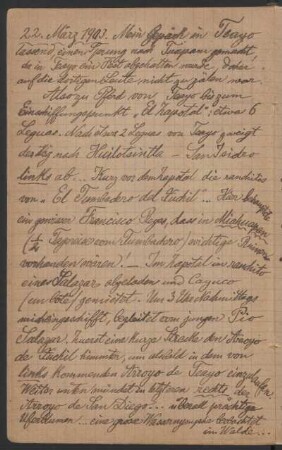 22. März 1903. Mein Gepäck in Teayo
lassend einen Sprung nach Tuxpam gemacht
da in Teayo ein Fest abgehalten wurde, daher
auf die dortigen Leute nicht zu zälen war.
Also zu Pferd von Teayo bis zum
Einschiffungspunkt „El Zapotal“: etwa 6
Leguas. Nach etwa 2 Leguas von Teayo zweigt
der Weg nach Huitzitzintla – San Isidro
links ab... Kurz vor dem Zapotal die ranchitos
von „El Tumbadero del Padil“... Hier behauptet
ein gewisser Francisco Reyes, dass in
vom Tumbadero) wichtige Ruinen
vorhanden wären! – Im Zapotal im ranchito
eines Salazar abgeladen und Cayuco
(ein Bote) gemietet. Um 3 Uhr Nachmittags
mich eingeschifft, begleitet vom jungen Pio
Salazar, zuerst eine kurze Strecke den Arroyo
de hinunter, um alsbald in dem von
links kommenden Arroyo de Teayo einzubiegen
Weiter unten mündet in letzteren rechts der
Arroyo de San Diego... überall prächtige
Uferbäume: eine grosse beobachtet
im Walde...